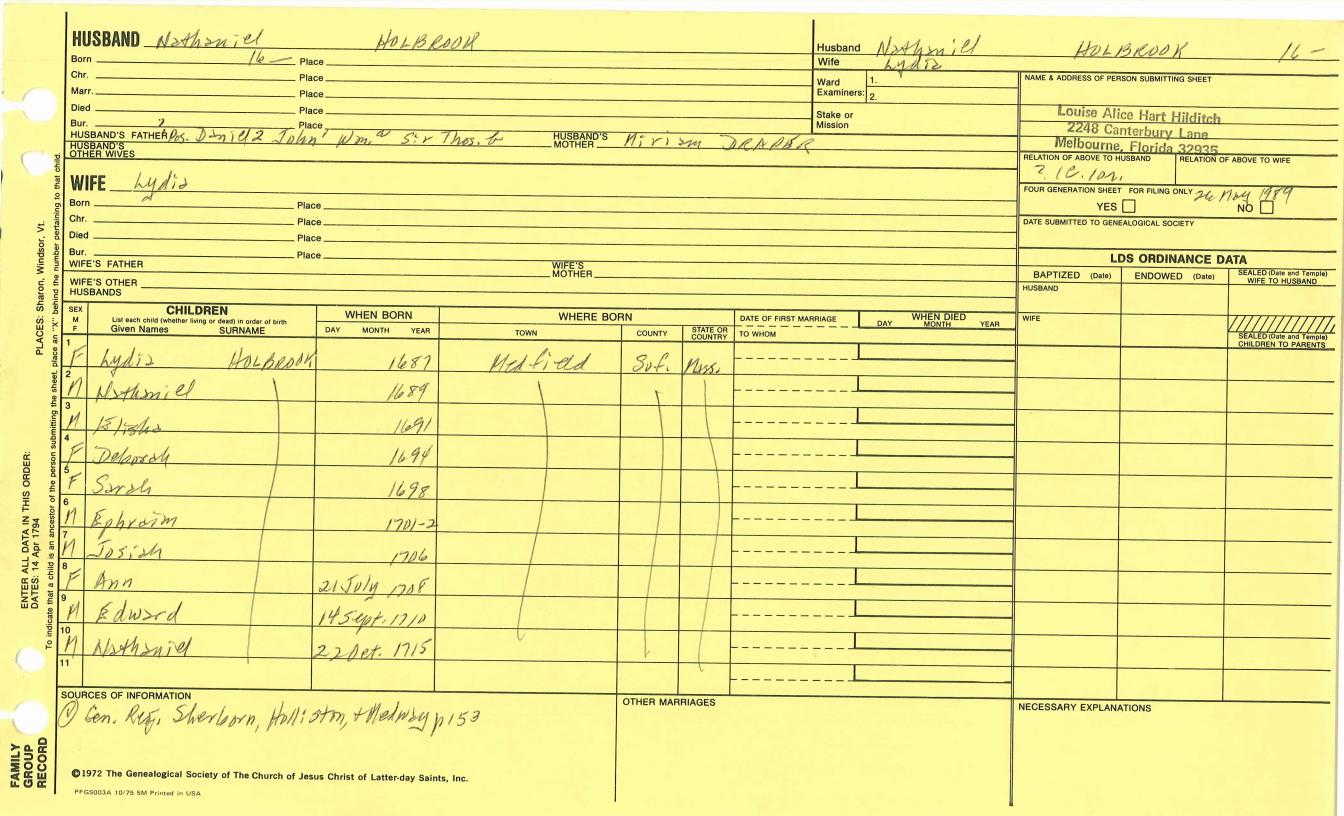 HUSBAND Nathaniel HOLBROOK
Born 16— Place
Chr. Place
Marr. Place
Died Place
Bur. Place
HUSBAND'S FATHER ? Pos. Daniel2 John1 Wm.a Sir Thos.b HUSBAND'S MOTHER Miriam DRAPER
HUSBAND'S OTHER WIVES
Husband Nathaniel HOLBROOK 16—
Wife Lydia
Ward Examiners: 1.
2.
Stake or Mission
NAME & ADDRESS OF PERSON SUBMITTING SHEET
Louise Alice Hart Hilditch
2248 Canterbury Lane
Melbourne, Florida 32935
RELATION OF ABOVE TO HUSBAND RELATION OF ABOVE TO WIFE
FOUR GENERATION SHEET FOR FILING ONLY 26 May 1989
YES NO
DATE SUBMITTED TO GENEALOGICAL SOCIETY
WIFE Lydia
Born Place
Chr. Place
Died Place
Bur. Place
WIFE'S FATHER WIFE'S MOTHER
WIFE'S OTHER HUSBANDS
LDS ORDINANCE DATA
BAPTIZED (Date) ENDOWED (Date) SEALED (Date and Temple) WIFE TO HUSBAND
HUSBAND
WIFE
SEALED (Date and Temple) CHILDREN TO PARENTS
SEX M F
CHILDREN
List each child (whether living or dead) in order of birth
Given Names SURNAME
WHEN BORN
DAY MONTH YEAR
WHERE BORN
TOWN COUNTY STATE OR COUNTRY
DATE OF FIRST MARRIAGE
TO WHOM
WHEN DIED
DAY MONTH YEAR
1 F Lydia HOLBROOK 1687 Medfield Suf. Mass.
2 M Nathaniel 1689
3 M Elisha 1691
4 F Deborah 1694
5 F Sarah 1698
6 M Ephraim 1701-2
7 M Josiah 1706
8 F Ann 21 July 1708
9 M Edward 14 Sept. 1710
10 M Nathaniel 22 Oct. 1715
11
SOURCES OF INFORMATION
Gen. Reg. Sherborn, Holliston, + Medway p 153
OTHER MARRIAGES
NECESSARY EXPLANATIONS
©1972 The Genealogical Society of The Church of Jesus Christ of Latter-day Saints, Inc.
PFGS003A 10/75 5M Printed in USA
FAMILY GROUP RECORD
ENTER ALL DATA IN THIS ORDER:
DATES: 14 Apr 1794
PLACES: Sharon, Windsor, Vt.
To indicate that a child is an ancestor of the person submitting the sheet, place an "X" behind the number pertaining to that child.